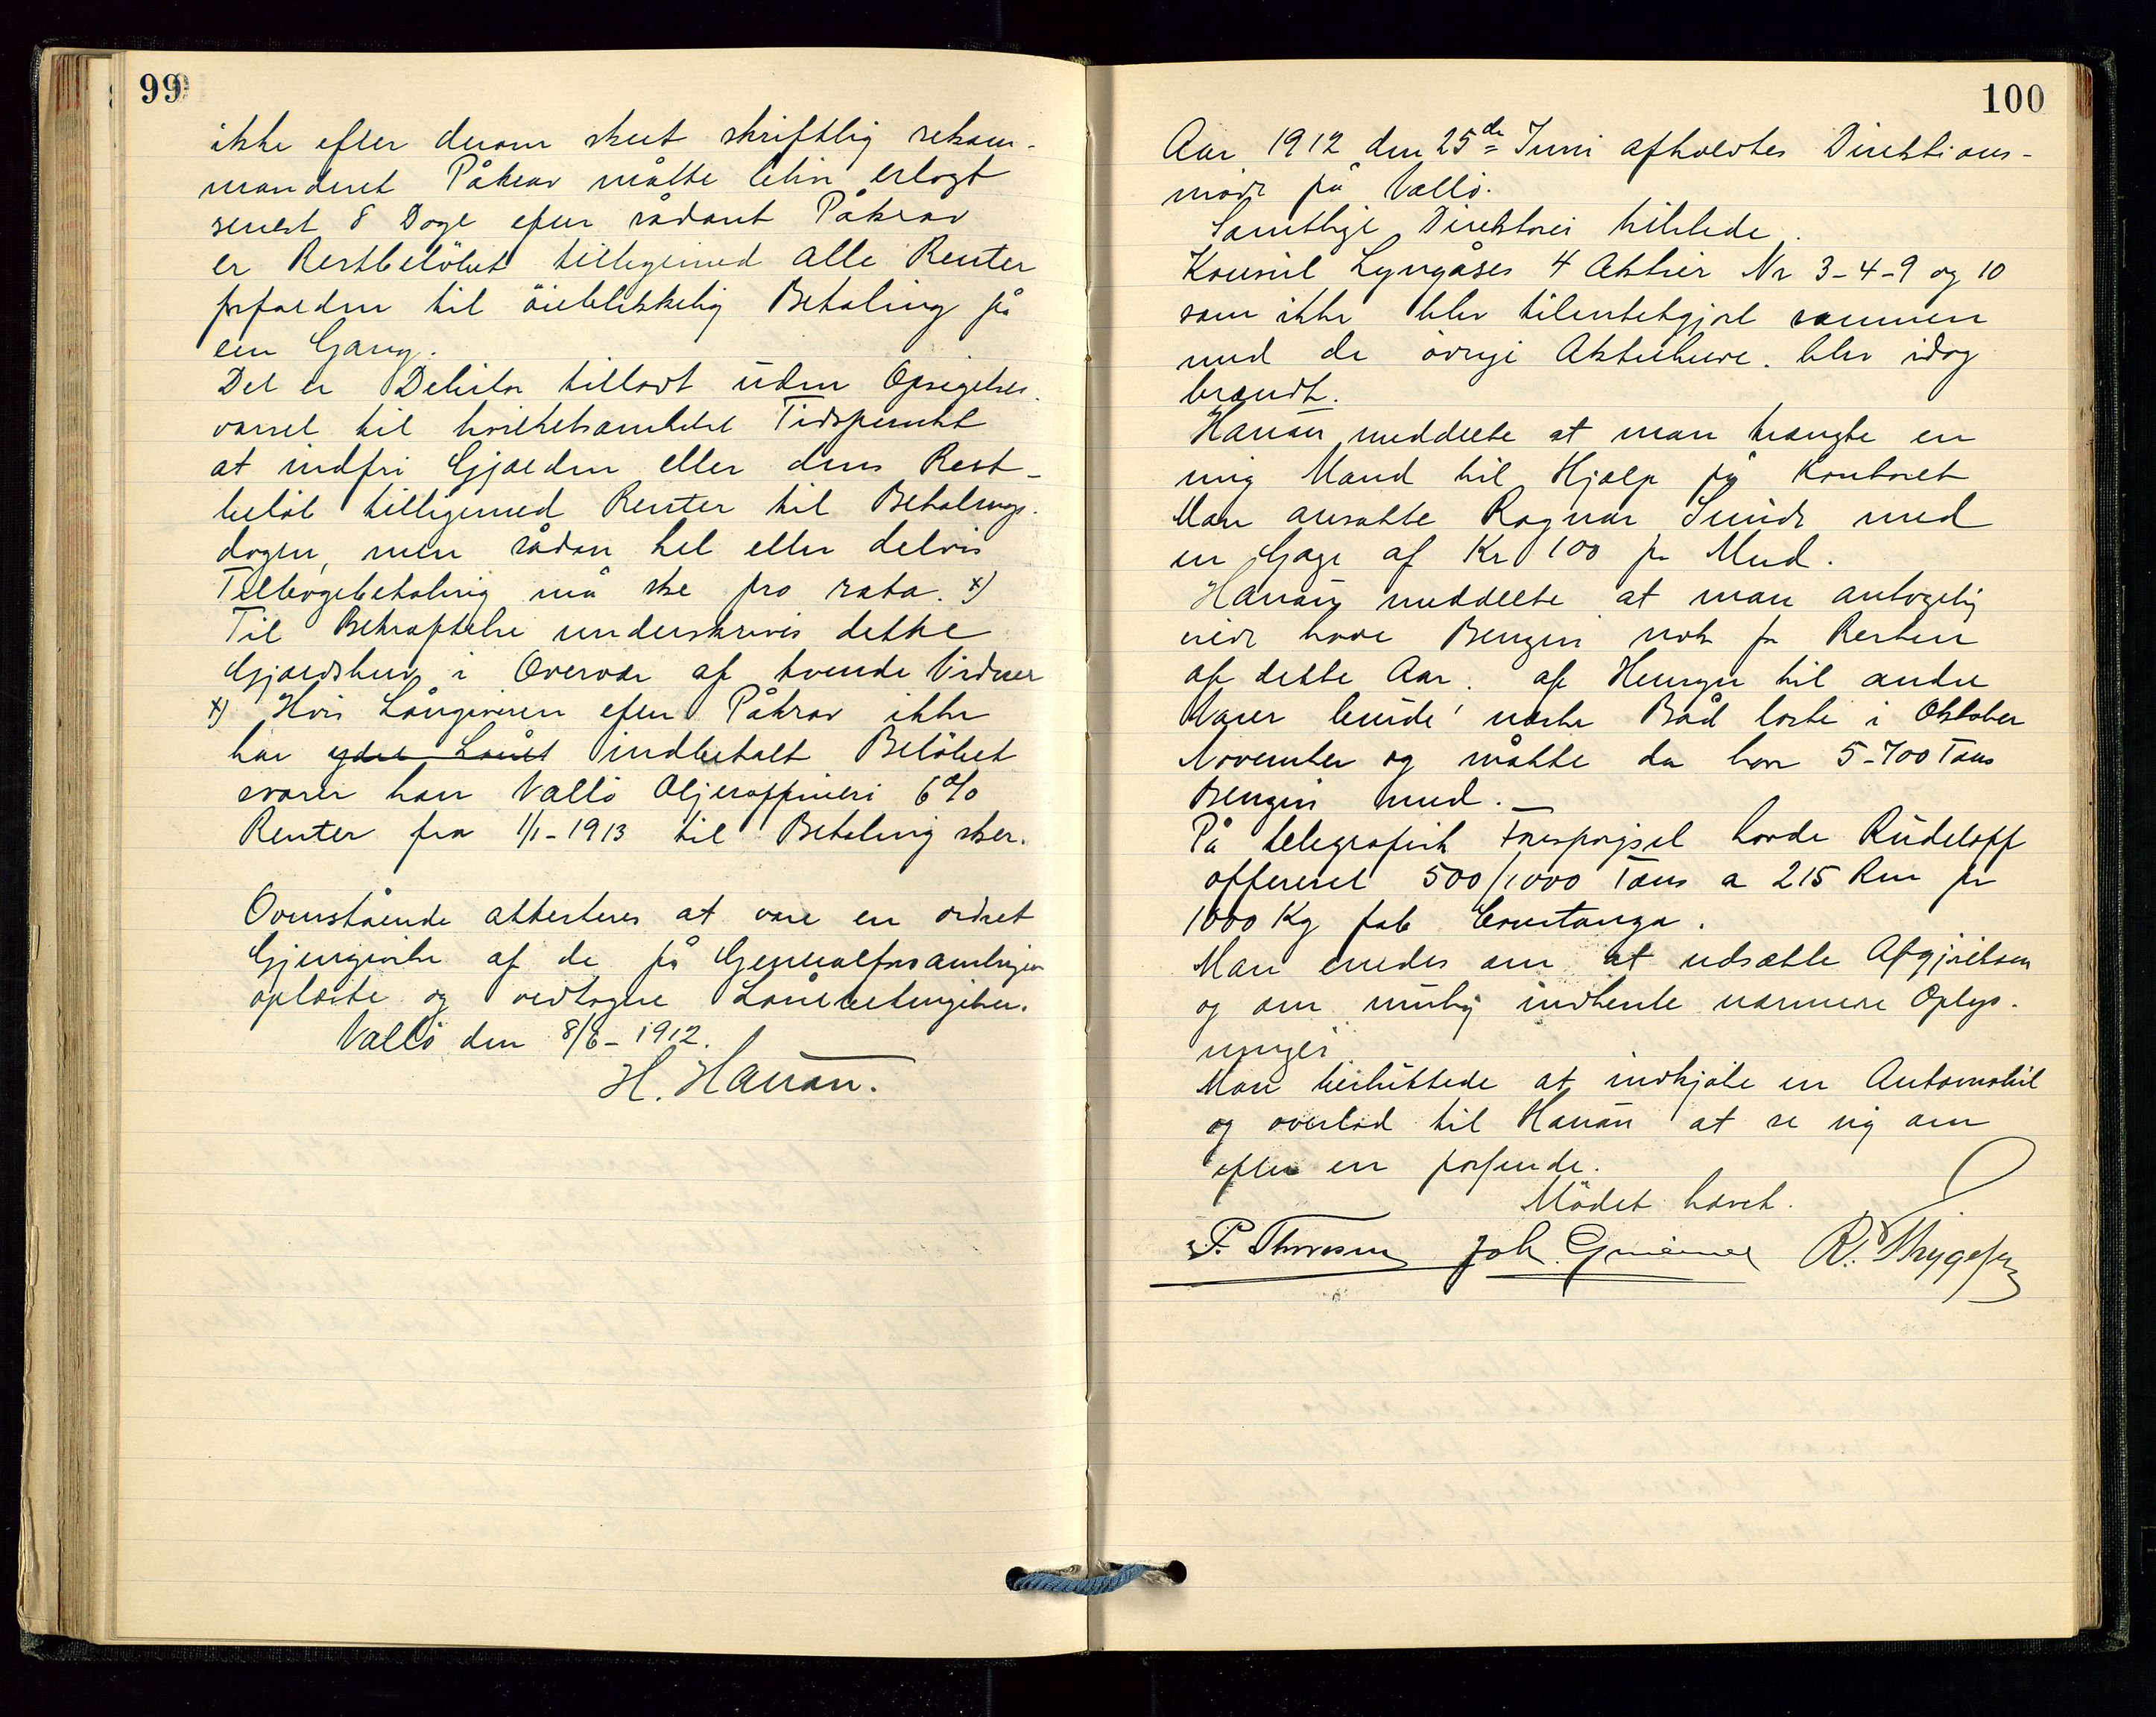 99
ikke efter derom skeet skriftlig rekom-
manderet Påkrav måtte blive erlagt
senest 8 Dage efter sådant Påkrav
er Restbeløbet tilligemed alle Renter
forfalden til öieblikkelig Betaling på
een Gang.
Det er Debitor tilladt uden Opsigelses-
varsel til hvilketsomhelst Tidspunkt
at indfri Gjælden eller dens Rest-
beløb tilligemed Renter til Betalings-
dagen, men sådan hel eller delvis
Tilbagebetaling må ske pro rata. x)
Til Bekræftelse underskrives dette
Gjældsbrev i Overvær af tvende Vidner
x) Hvis Långiveren efter Påkrav ikke
har ydet Lånet indbetalt Beløbet
svarer han Vallö Oljeraffineri 6%
Renter fra 1/1-1913 til Betaling sker.
Ovenstående attesteres at være en ordret
Gjengivelse af de på Generalforsamlingen
oplæste og vedtagne Lånebetingelser.
Vallö den 8/6-1912.
H. Hauan.
100
Aar 1912 den 25de Juni afholdtes Direktions-
möde på Vallö.
Samtlige Direktører tilstede.
Konsul Lyngåses 4 Aktier Nr 3-4-9 og 10
som ikke blev tilintetgjort sammen
med de övrige Aktiebreve. blev idag
brændt.
Hauan meddelte at man trængte en
ung Mand til Hjælp på Kontoret
Man ansatte Ragnar Sunde med
en Gage af Kr 100 pr Mnd.
Hauan meddelte at man antagelig
vilde have Bensin nok for Resten
af dette Aar. af Hensyn til andre
Varer burde næste Båd laste i Oktober
November og måtte da have 5-700 Tons
Bensin med.
På telegrafisk Forespørgsel havde Rudeloff
offereret 500/1000 Tons a 215 Rm pr
1000 Kg fob Constanza.
Man enedes om at udsætte Afgjörelsen
og om mulig indhente nærmere Oplys-
ninger
Man besluttede at indkjøbe en Automobil
og overlod til Hauan at se sig om
efter en passende.
Mödet hævet.
P. Thoresen Joh. R. Thygesen